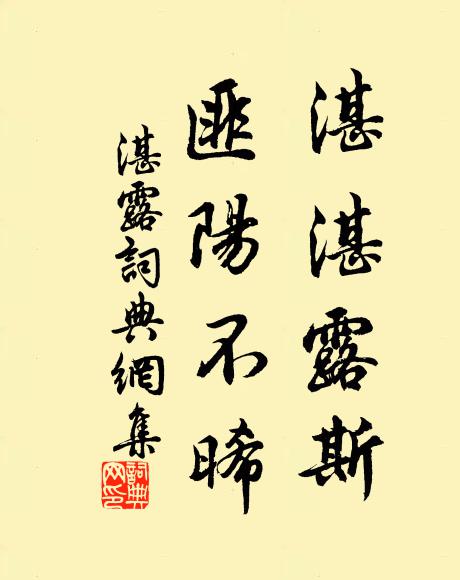 湛湛露斯
匪陽不晞
湛露詞典網集
詞典網印